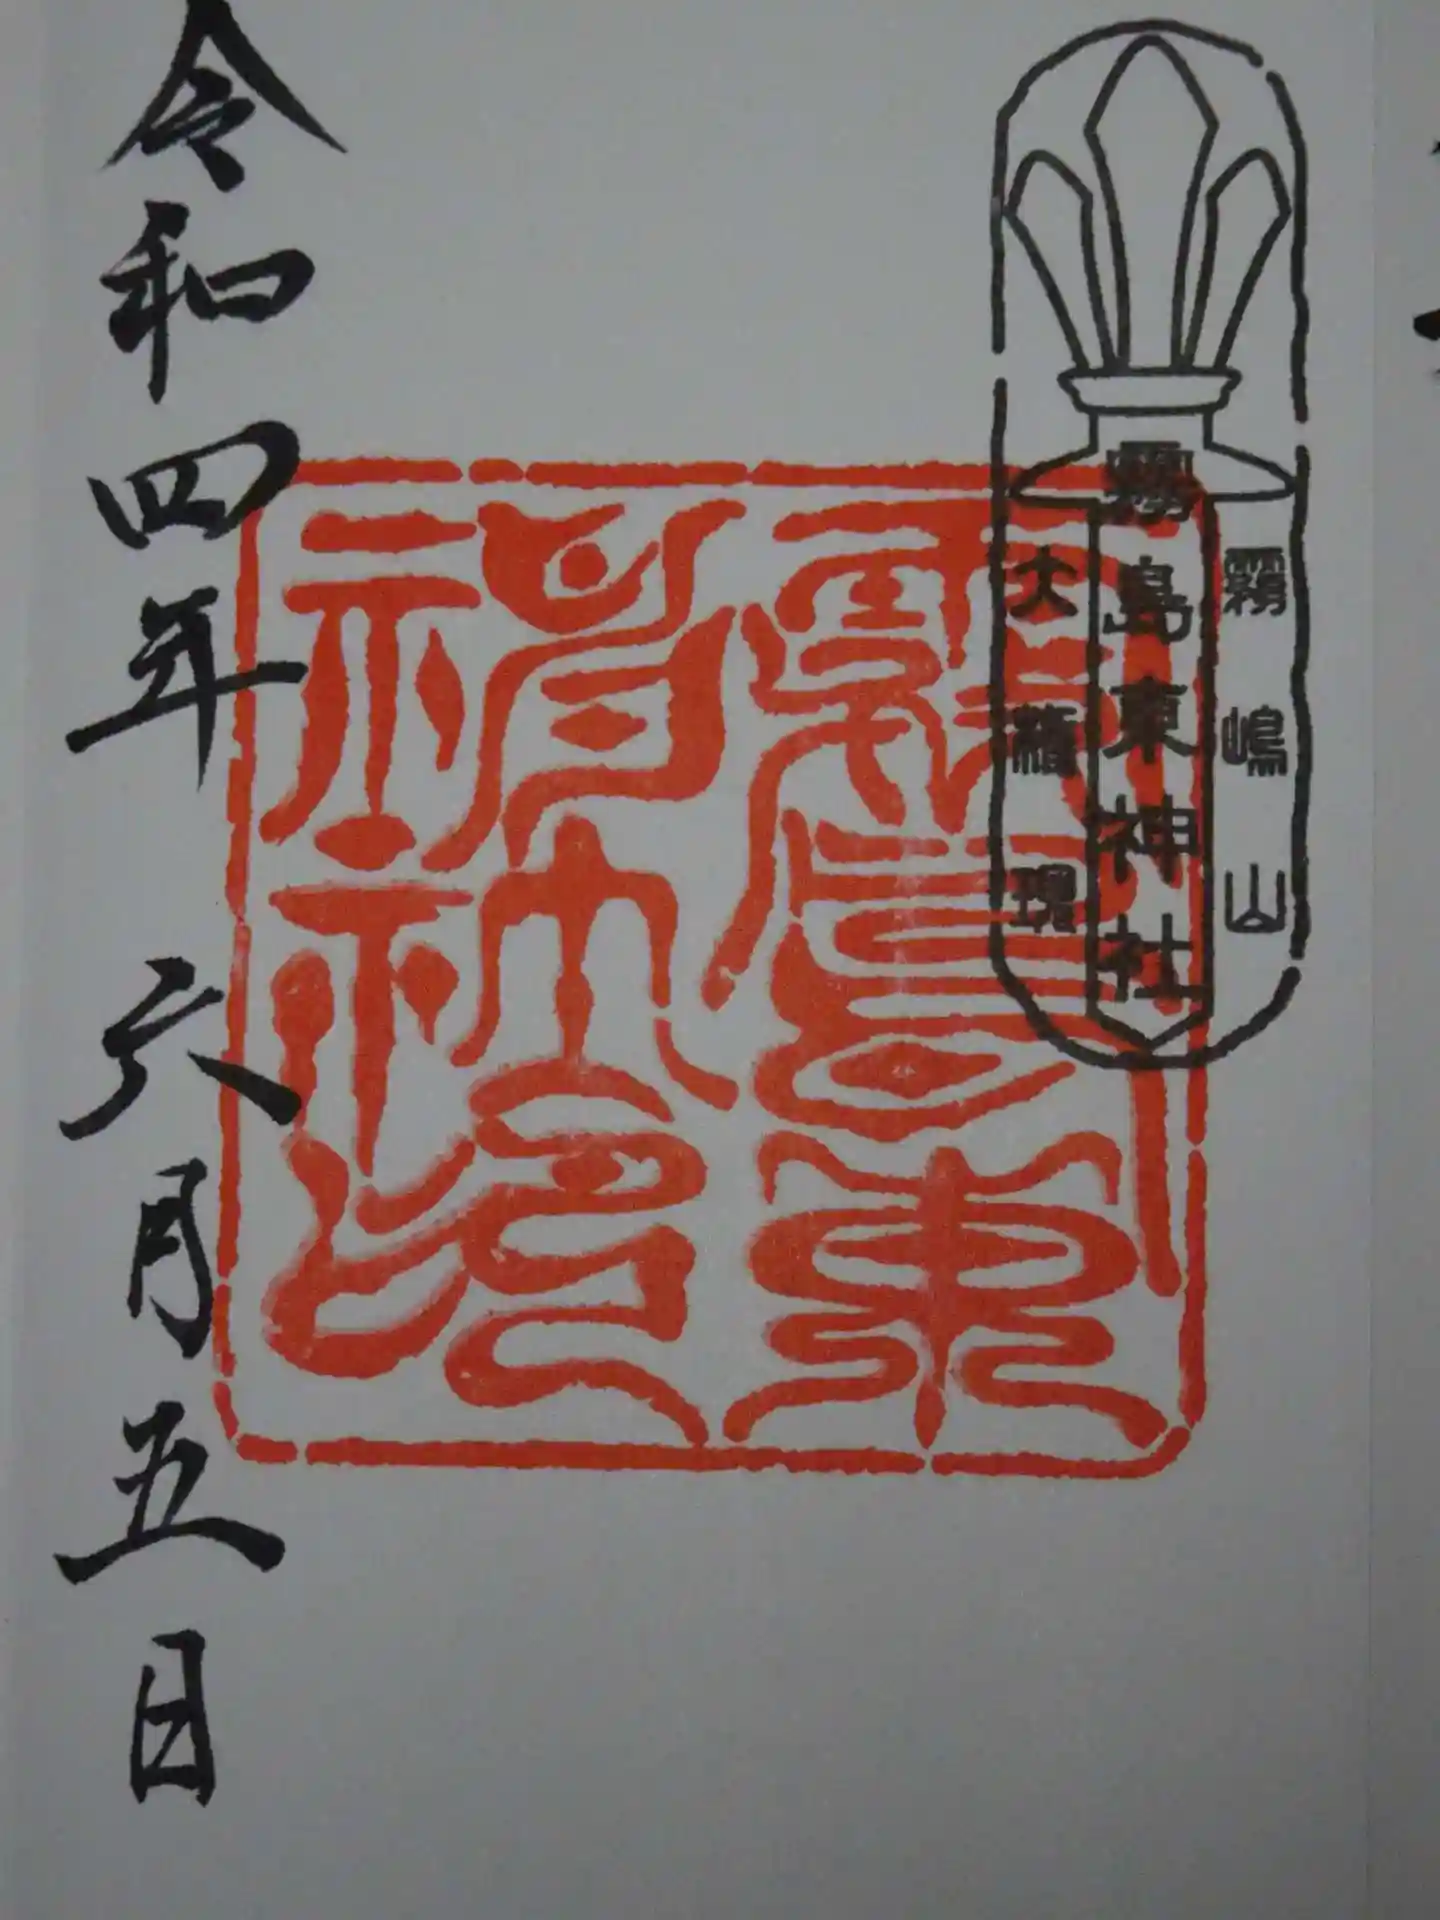 霧嶋山
霧島東神社
大権現
霧島東
神社印
令和四年 六月五日